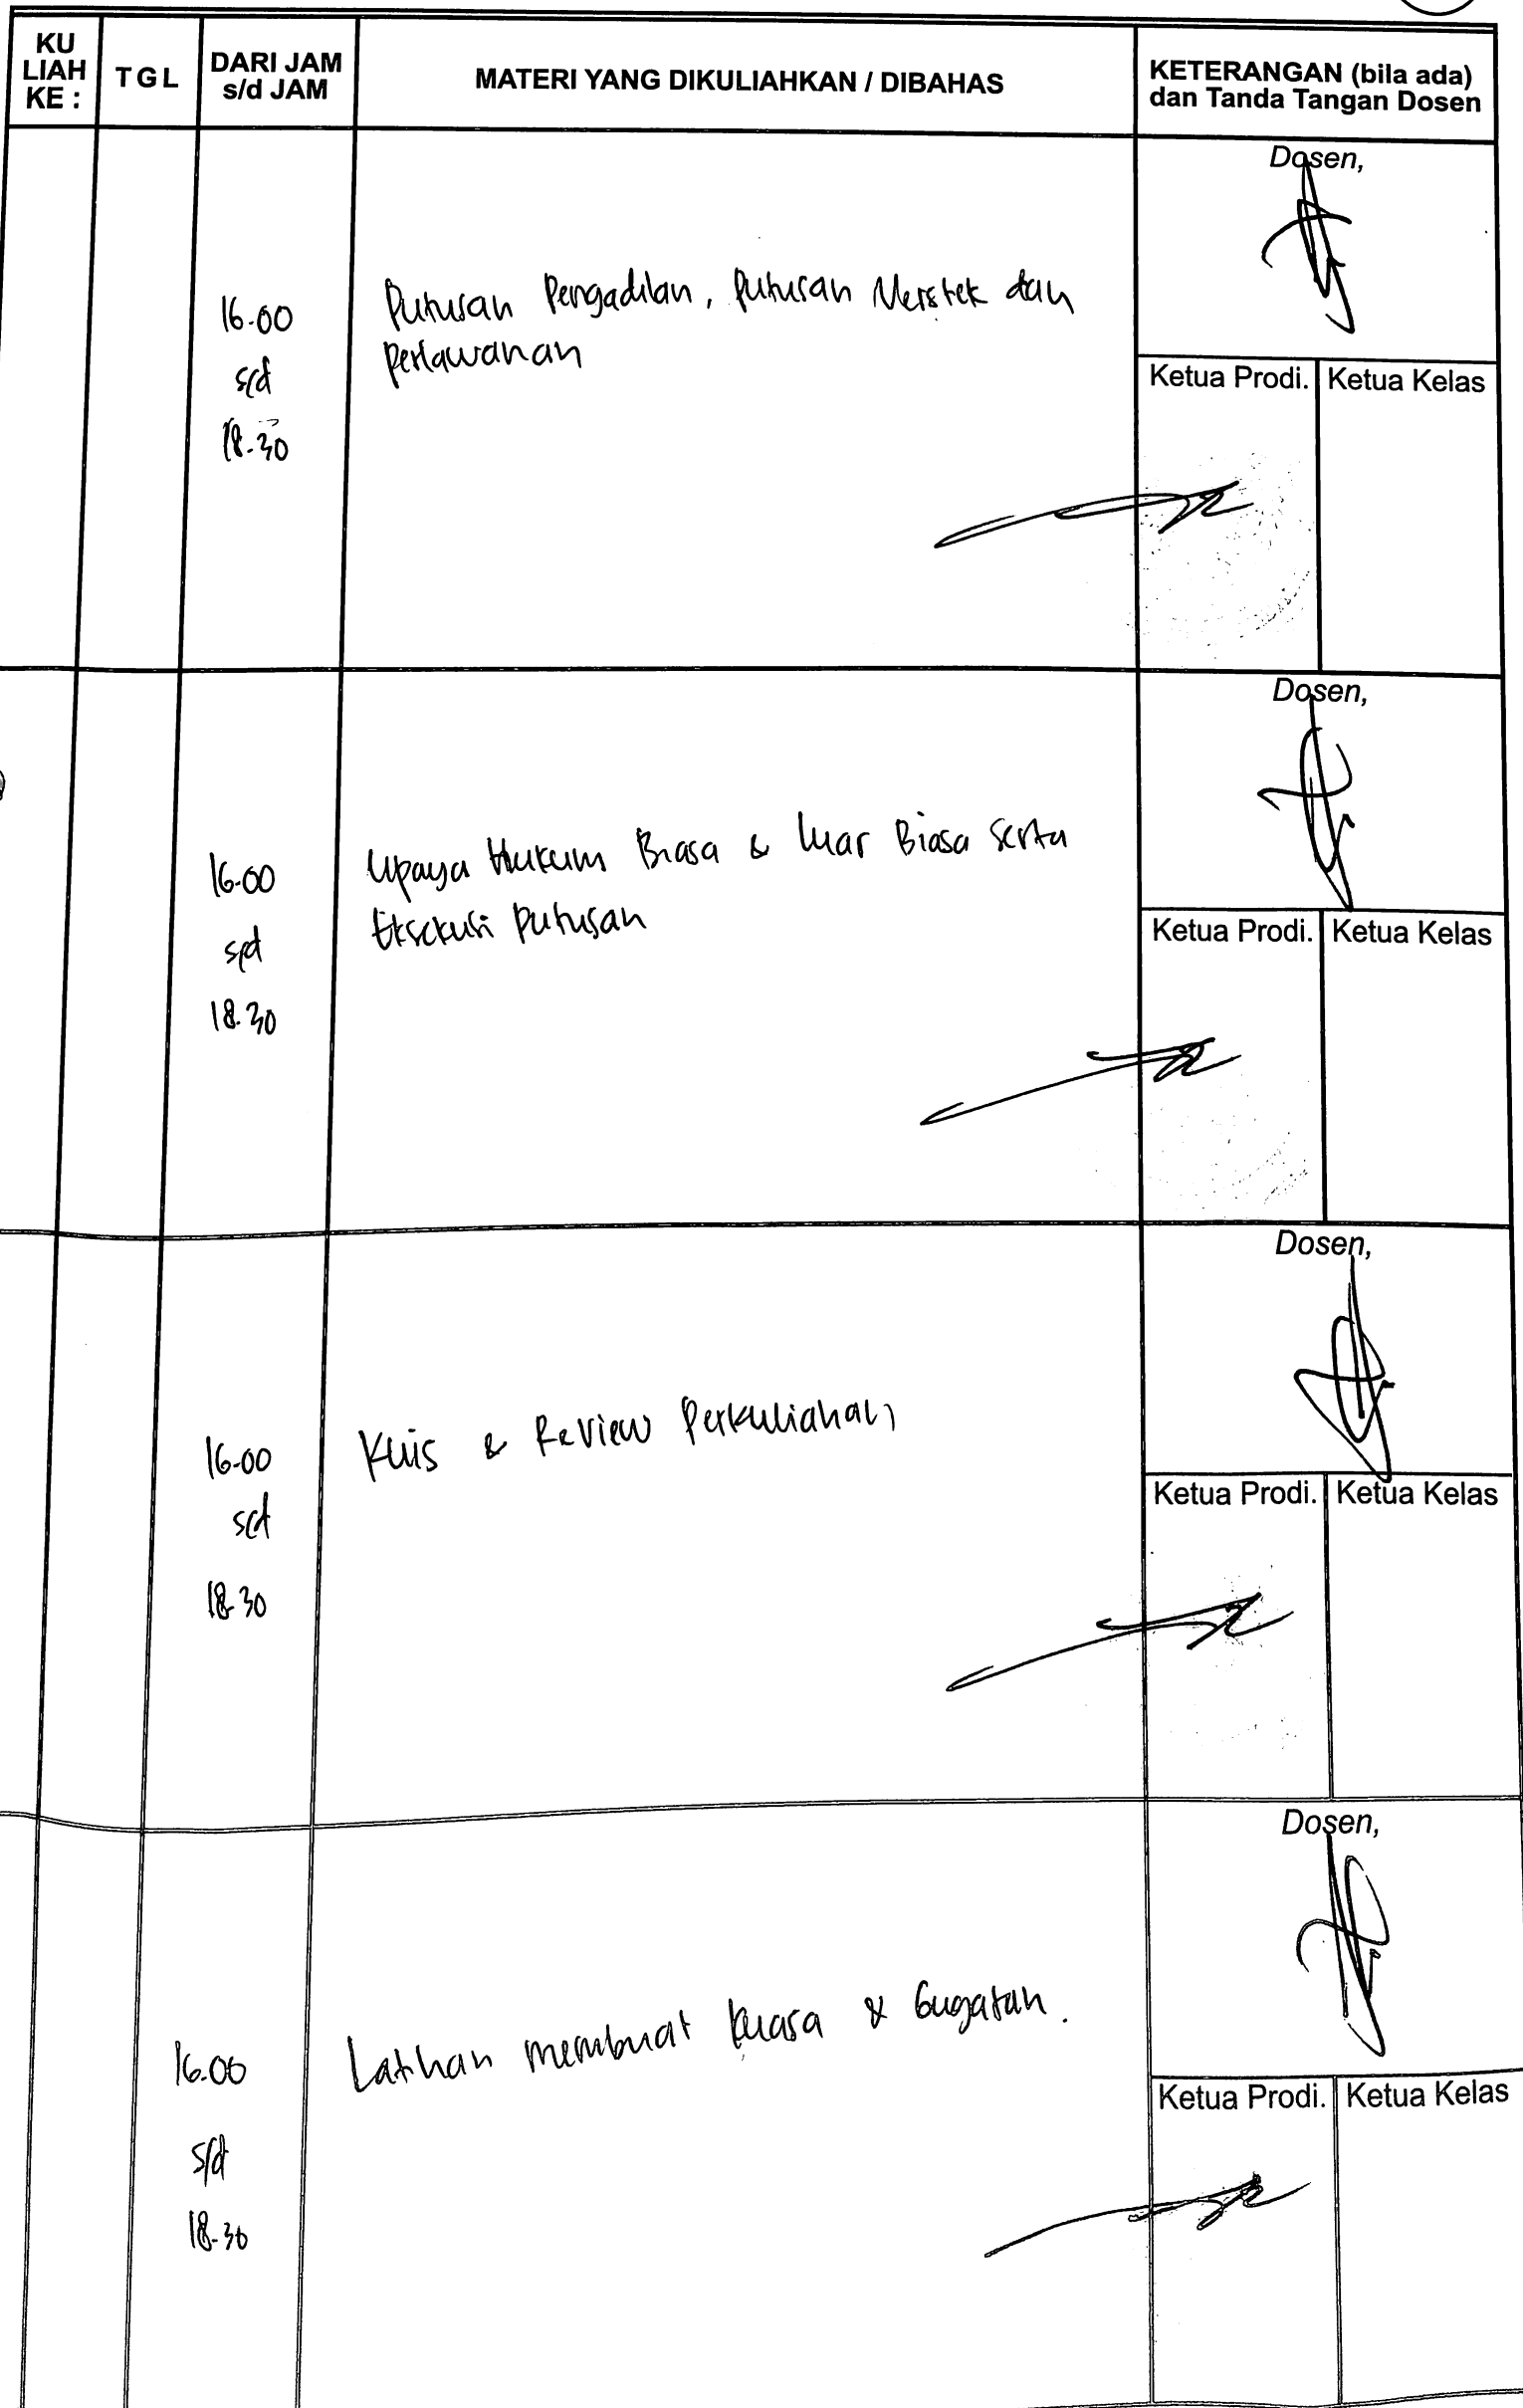 KU LIAH KE :
TGL
DARI JAM s/d JAM
MATERI YANG DIKULIAHKAN / DIBAHAS
KETERANGAN (bila ada) dan Tanda Tangan Dosen
16.00
s/d
18.30
Putusan Pengadilan, Putusan Verstek dan
Perlawanan
Dosen,
Ketua Prodi. Ketua Kelas
16.00
s/d
18.30
Upaya Hukum Biasa & Luar Biasa Serta
Eksekusi Putusan
Dosen,
Ketua Prodi. Ketua Kelas
16.00
s/d
18.30
Kuis & Review Perkuliahan
Dosen,
Ketua Prodi. Ketua Kelas
16.00
s/d
18.30
Latihan membuat Kuasa & Gugatan.
Dosen,
Ketua Prodi. Ketua Kelas